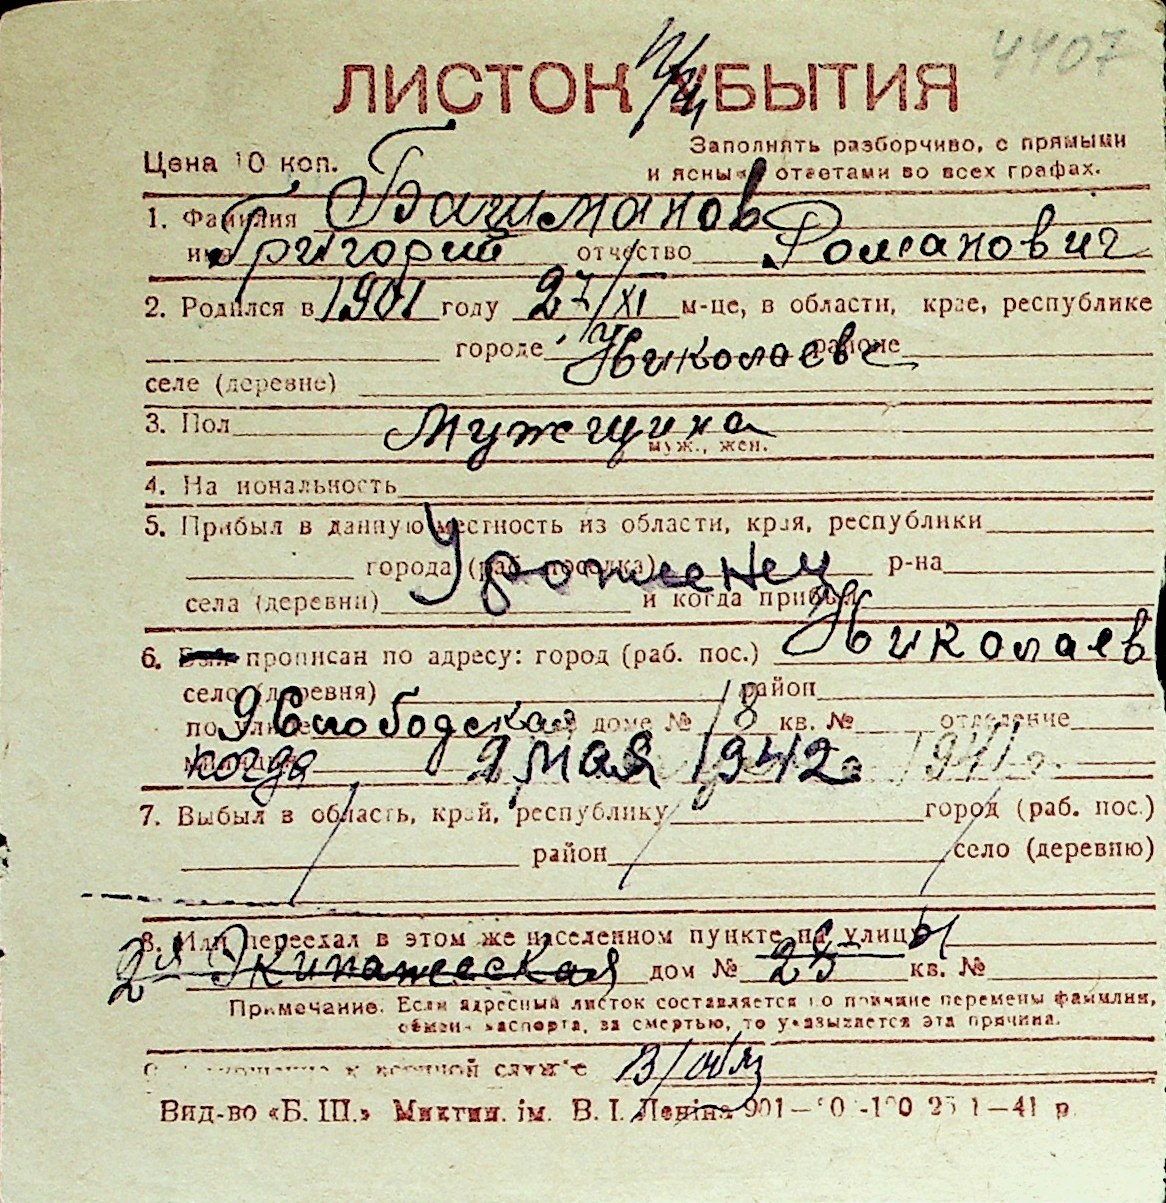 4407
ЛИСТОК УБЫТИЯ
Заполнять разборчиво, с прямыми
Цена 10 коп.
и ясными ответами во всех графах.
1. Фамилия Башманов
имя Григорий отчество Романович
2. Родился в 1901 году 27/XI м-це, в области, крае, республике
городе Николаеве районе
селе (деревне)
3. Пол Мужчина
муж., жен.
4. Национальность
5. Прибыл в данную местность из области, края, республики
города (раб. поселка) р-на
Уроженец
села (деревни) и когда прибыл
6. прописан по адресу: город (раб. пос.) Николаев
село (деревня) район
по улице 9 Слободская доме № 18 кв. № отделение
когда 9 мая 1942 г 1941 г.
7. Выбыл в область, край, республику город (раб. пос.)
район село (деревню)
8. Или переехал в этом же населенном пункте на улицы
2я Экипажеская дом № 25 кв. №
Примечание. Если адресный листок составляется по причине перемены фамилии,
обмена паспорта, за смертью, то указывается эта причина.
к военной службе В/обяз
Вид-во «Б. Ш.» Микт им. В. І. Леніна 901— 1—41 р.